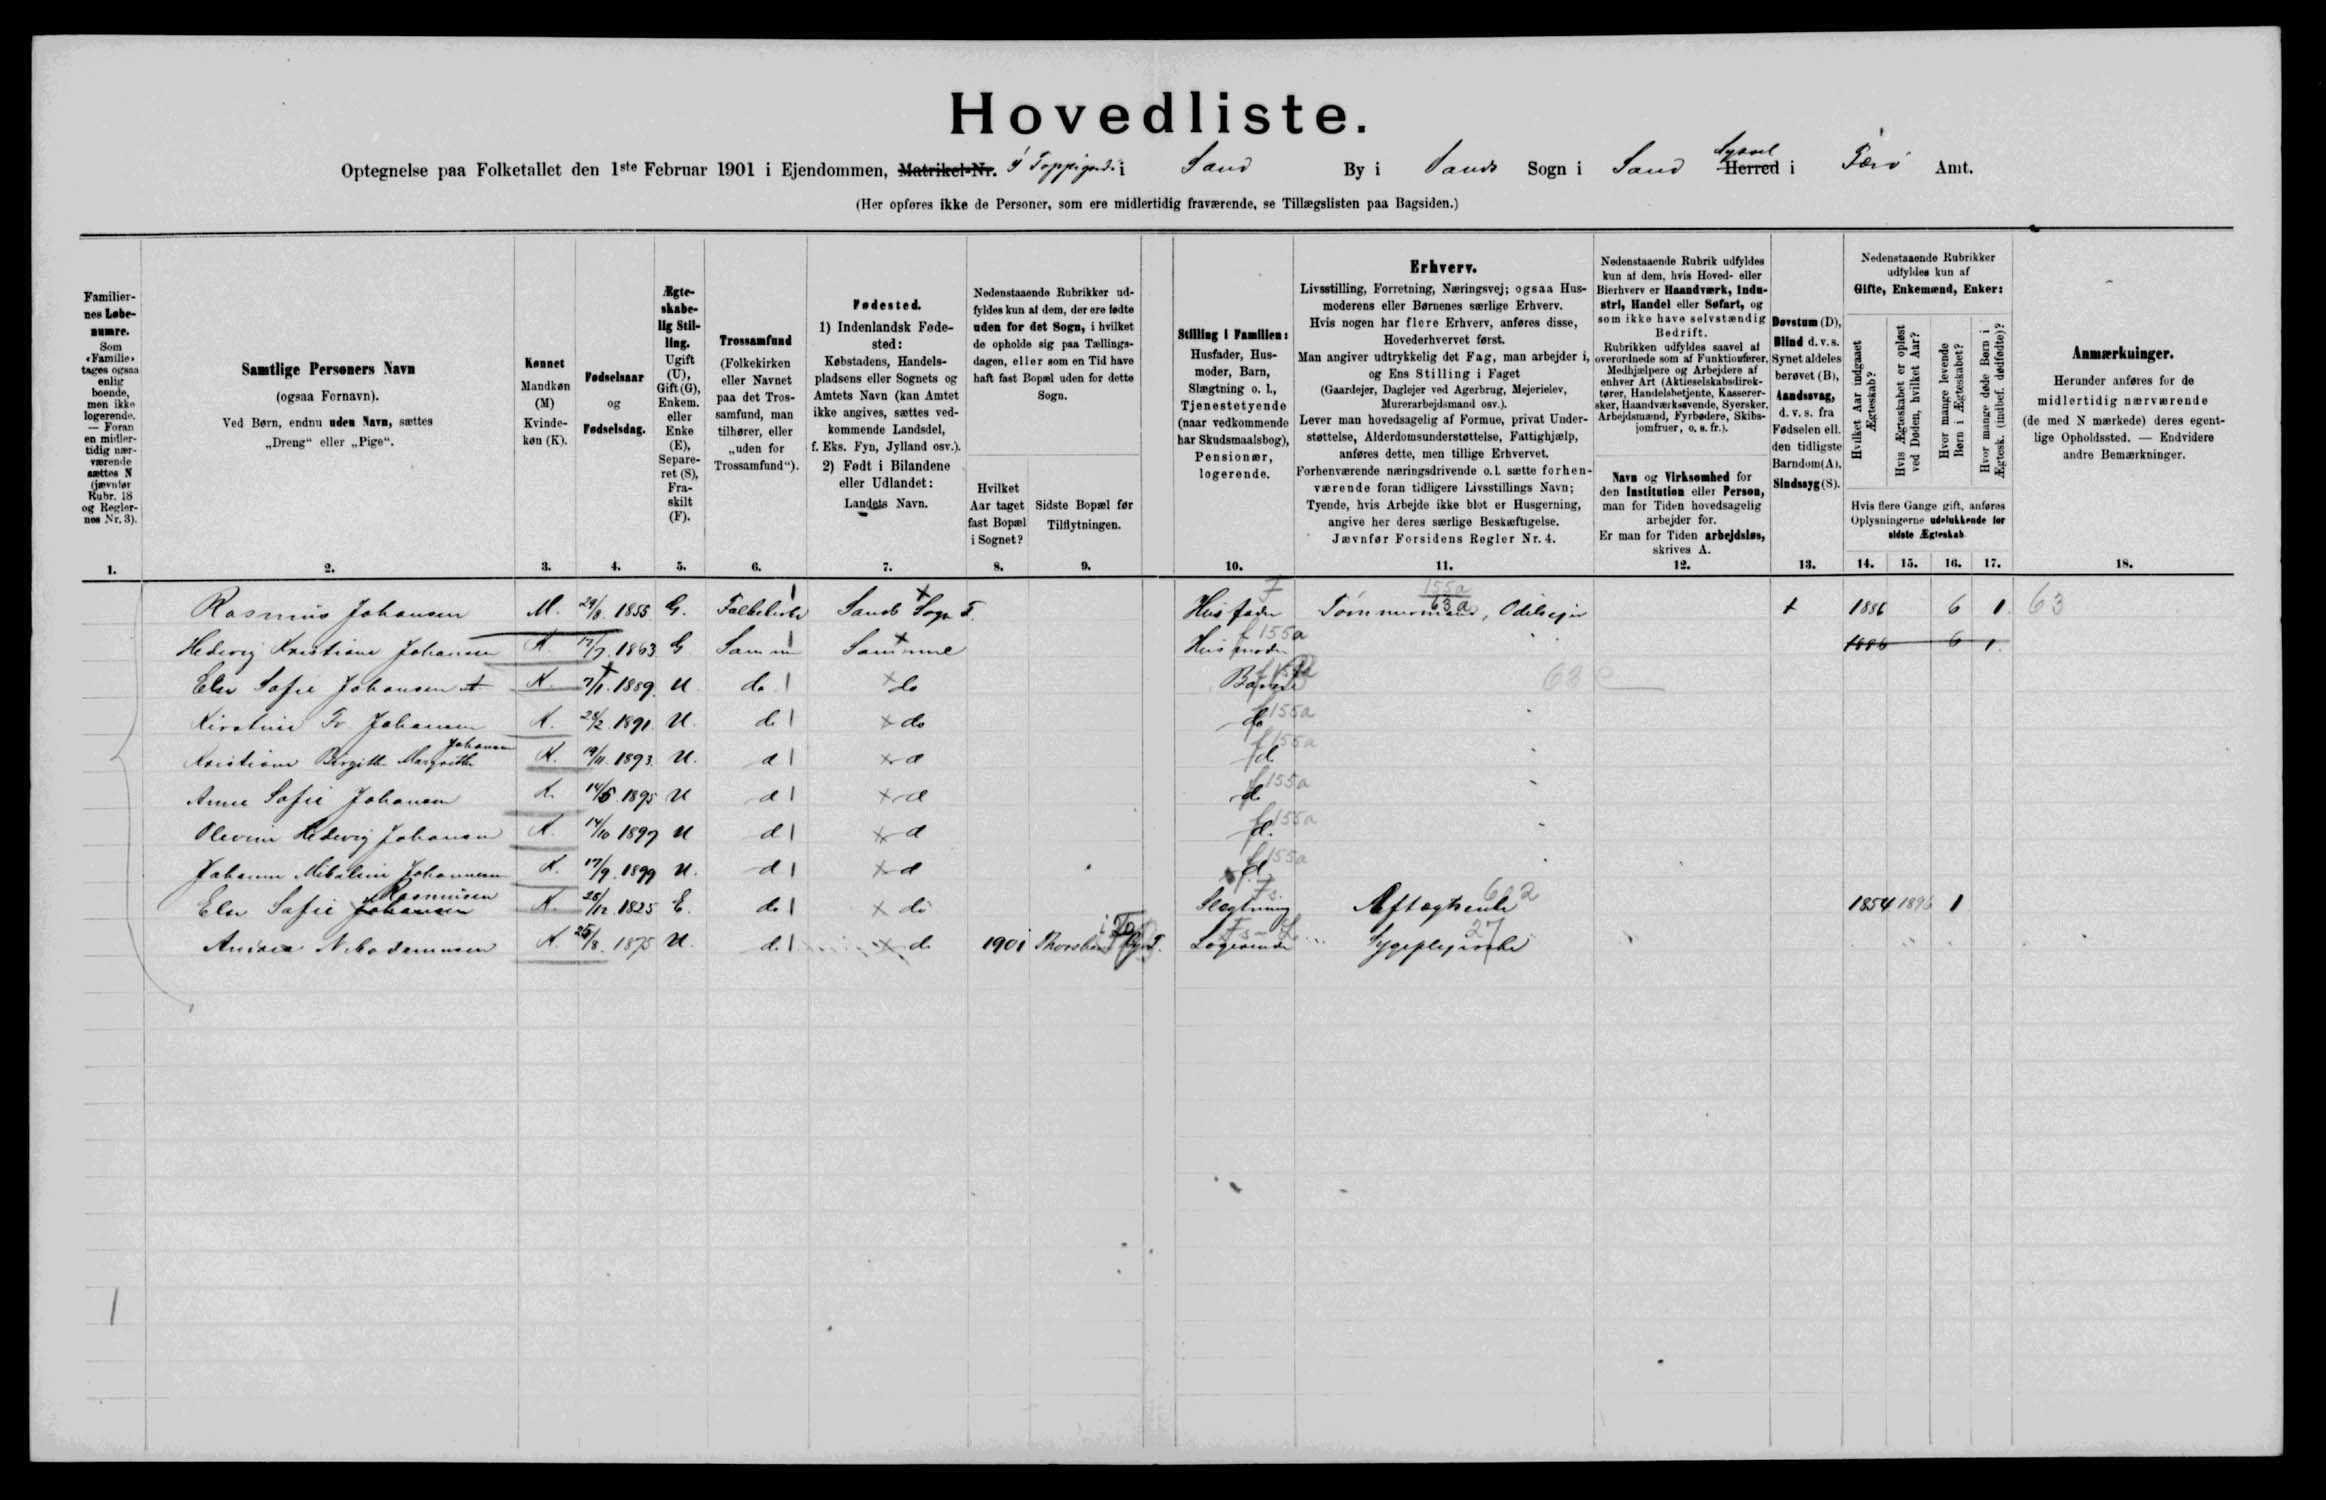 Hovedliste.
Optegnelse paa Folketallet den 1ste Februar 1901 i Ejendommen, Matrikel-Nr. i Sand By i Sands Sogn i Sand Syssel Herred i Færø Amt.
(Her opføres ikke de Personer, som ere midlertidig fraværende, se Tillægslisten paa Bagsiden.)
Familier-
nes Løbe-
numre.
Som
«Familie»
tages ogsaa
enlig
boende,
men ikke
logerende.
— Foran
en midler-
tidig nær-
værende
sættes N
(jævnfør
Rubr. 18
og Regler-
nes Nr. 3).
1.
Samtlige Personers Navn
(ogsaa Fornavn).
Ved Børn, endnu uden Navn, sættes
„Dreng“ eller „Pige“.
2.
Kønnet
Mandkøn
(M)
Kvinde-
køn (K).
3.
Fødselsaar
og
Fødselsdag.
4.
Ægte-
skabe-
lig Stil-
ling.
Ugift
(U),
Gift (G),
Enkem.
eller
Enke
(E),
Separe-
ret (S),
Fra-
skilt
(F).
5.
Trossamfund
(Folkekirken
eller Navnet
paa det Tros-
samfund, man
tilhører, eller
„uden for
Trossamfund“).
6.
Fødested.
1) Indenlandsk Føde-
sted:
Købstadens, Handels-
pladsens eller Sognets og
Amtets Navn (kan Amtet
ikke angives, sættes ved-
kommende Landsdel,
f. Eks. Fyn, Jylland osv.).
2) Født i Bilandene
eller Udlandet:
Landets Navn.
7.
Nedenstaaende Rubrikker ud-
fyldes kun af dem, der ere fødte
uden for det Sogn, i hvilket
de opholde sig paa Tællings-
dagen, eller som en Tid have
haft fast Bopæl uden for dette
Sogn.
Hvilket
Aar taget
fast Bopæl
i Sognet?
8.
Sidste Bopæl før
Tilflytningen.
9.
Stilling i Familien:
Husfader, Hus-
moder, Barn,
Slægtning o. l.,
Tjenestetyende
(naar vedkommende
har Skudsmaalsbog),
Pensionær,
logerende.
10.
Erhverv.
Livsstilling, Forretning, Næringsvej; ogsaa Hus-
moderens eller Børnenes særlige Erhverv.
Hvis nogen har flere Erhverv, anføres disse,
Hovederhvervet først.
Man angiver udtrykkelig det Fag, man arbejder i,
og Ens Stilling i Faget
(Gaardejer, Daglejer ved Agerbrug, Mejerielev,
Murerarbejdsmand osv.).
Lever man hovedsagelig af Formue, privat Under-
støttelse, Alderdomsunderstøttelse, Fattighjælp,
anføres dette, men tillige Erhvervet.
Forhenværende næringsdrivende o. l. sætte forhen-
værende foran tidligere Livsstillings Navn;
Tyende, hvis Arbejde ikke blot er Husgerning,
angive her deres særlige Beskæftigelse.
Jævnfør Forsidens Regler Nr. 4.
11.
Nedenstaaende Rubrik udfyldes
kun af dem, hvis Hoved- eller
Bierhverv er Haandværk, Indu-
stri, Handel eller Søfart, og
som ikke have selvstændig
Bedrift.
Rubrikken udfyldes saavel af
overordnede som af Funktionærer,
Medhjælpere og Arbejdere af
enhver Art (Aktieselskabsdirek-
tører, Handelsbetjente, Kasserer-
sker, Haandværkssvende, Syersker,
Arbejdsmænd, Fyrbødere, Skibs-
jomfruer, o. s. fr.).
Navn og Virksomhed for
den Institution eller Person,
man for Tiden hovedsagelig
arbejder for.
Er man for Tiden arbejdsløs,
skrives A.
12.
Døvstum (D),
Blind d. v. s.
Synet aldeles
berøvet (B),
Aandssvag,
d. v. s. fra
Fødselen ell.
den tidligste
Barndom (A),
Sindssyg (S).
13.
Nedenstaaende Rubrikker
udfyldes kun af
Gifte, Enkemænd, Enker:
Hvilket Aar indgaaet
Ægteskab?
Hvis Ægteskabet er opløst
ved Døden, hvilket Aar?
Hvor mange levende
Børn i Ægteskabet?
Hvor mange døde Børn i
Ægtesk. (indbef. dødfødte)?
Hvis flere Gange gift, anføres
Oplysningerne udelukkende for
sidste Ægteskab
14. 15. 16. 17.
Anmærkninger.
Herunder anføres for de
midlertidig nærværende
(de med N mærkede) deres egent-
lige Opholdssted. — Endvidere
andre Bemærkninger.
18.
Rasmus Johansen M. 29/8. 1855 G. Folkekirke Sands Sogn F. Husfader Tømmermand, Odelsejer 155a 63a 1886 6 1. 63
Hedevig Kristiane Johansen K. 17/7. 1863 G Samme Samme Husmoder f 155a 1886 6 1.
Else Sofie Johansen K. 7/1. 1889. U do do Barn
Kirstine Fr. Johansen K. 24/2. 1891. U. do do do 155a
Kristiane Birgitte Margrethe Johansen K. 19/11. 1893. U. d d d 155a
Anne Sofie Johansen K. 14/5. 1895 U d d d 155a
Olevine Hedevig Johansen K. 14/10 1897 U d d d. 155a
Johanne Mikaline Johannesen K. 17/9. 1899 U. d d d 155a
Else Sofie Johansen Rasmussen K. 28/12. 1825 E. do do Slægtning Aftægtsenke 1854 1896 1
Anisia Nikodemusen K. 25/8. 1875 U. d. d. 1901 Thorshavn Logerende Sygeplejerske 27